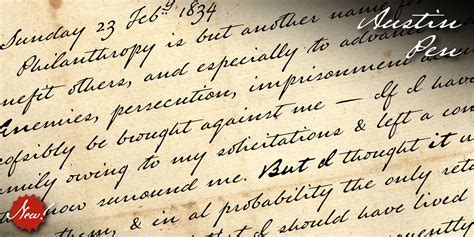 Sunday 23 Feby 1834
Philanthropy is but another name for
nefit others, and especially to advance
Enemies, persecution, imprisonment
cofsibly be brought against me — If I have
mily owing to my solicitations & left a com
now surround me. But I thought it w
them, & in al probability the only ret
I should have lived
Austin
Pen
New!